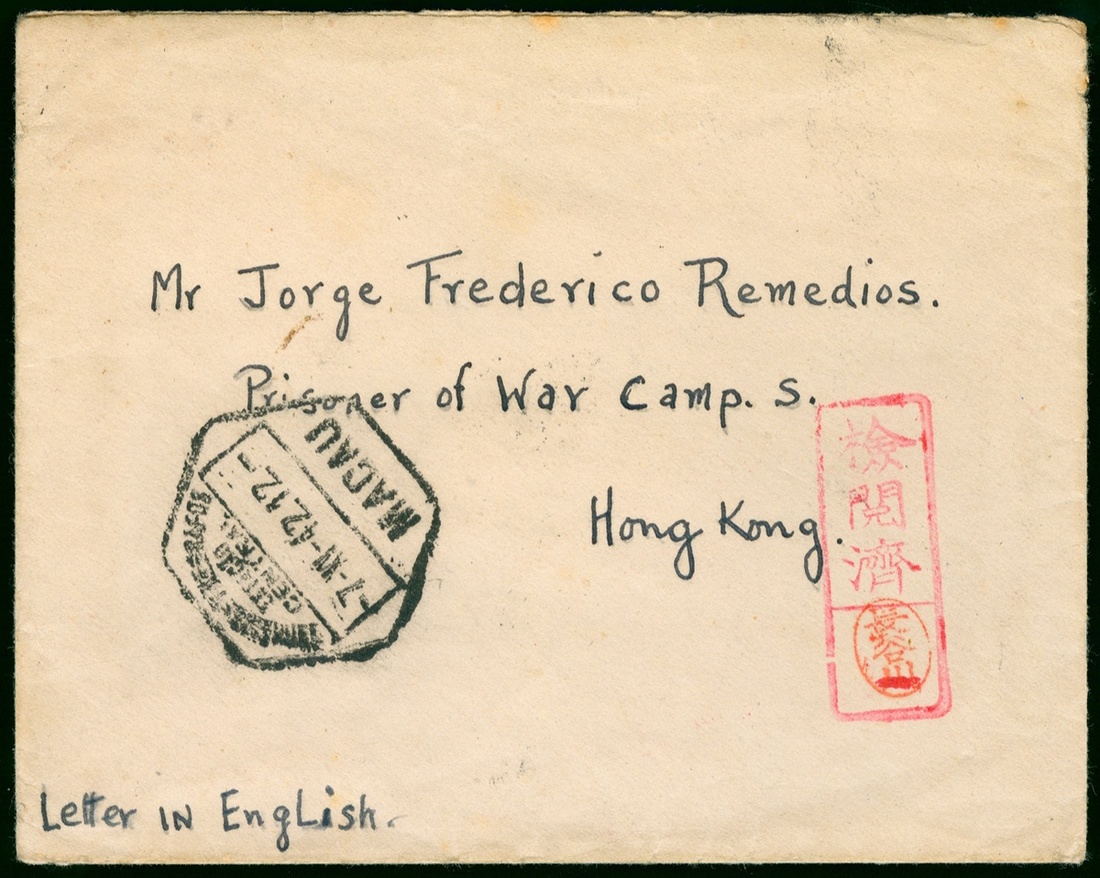 Mr Jorge Frederico Remedios.
Prisoner of War Camp. S.
Hong Kong.
MACAU
-7-XI-42.12.-
CENTRAL
檢
閲
濟
長谷川
Letter IN English.